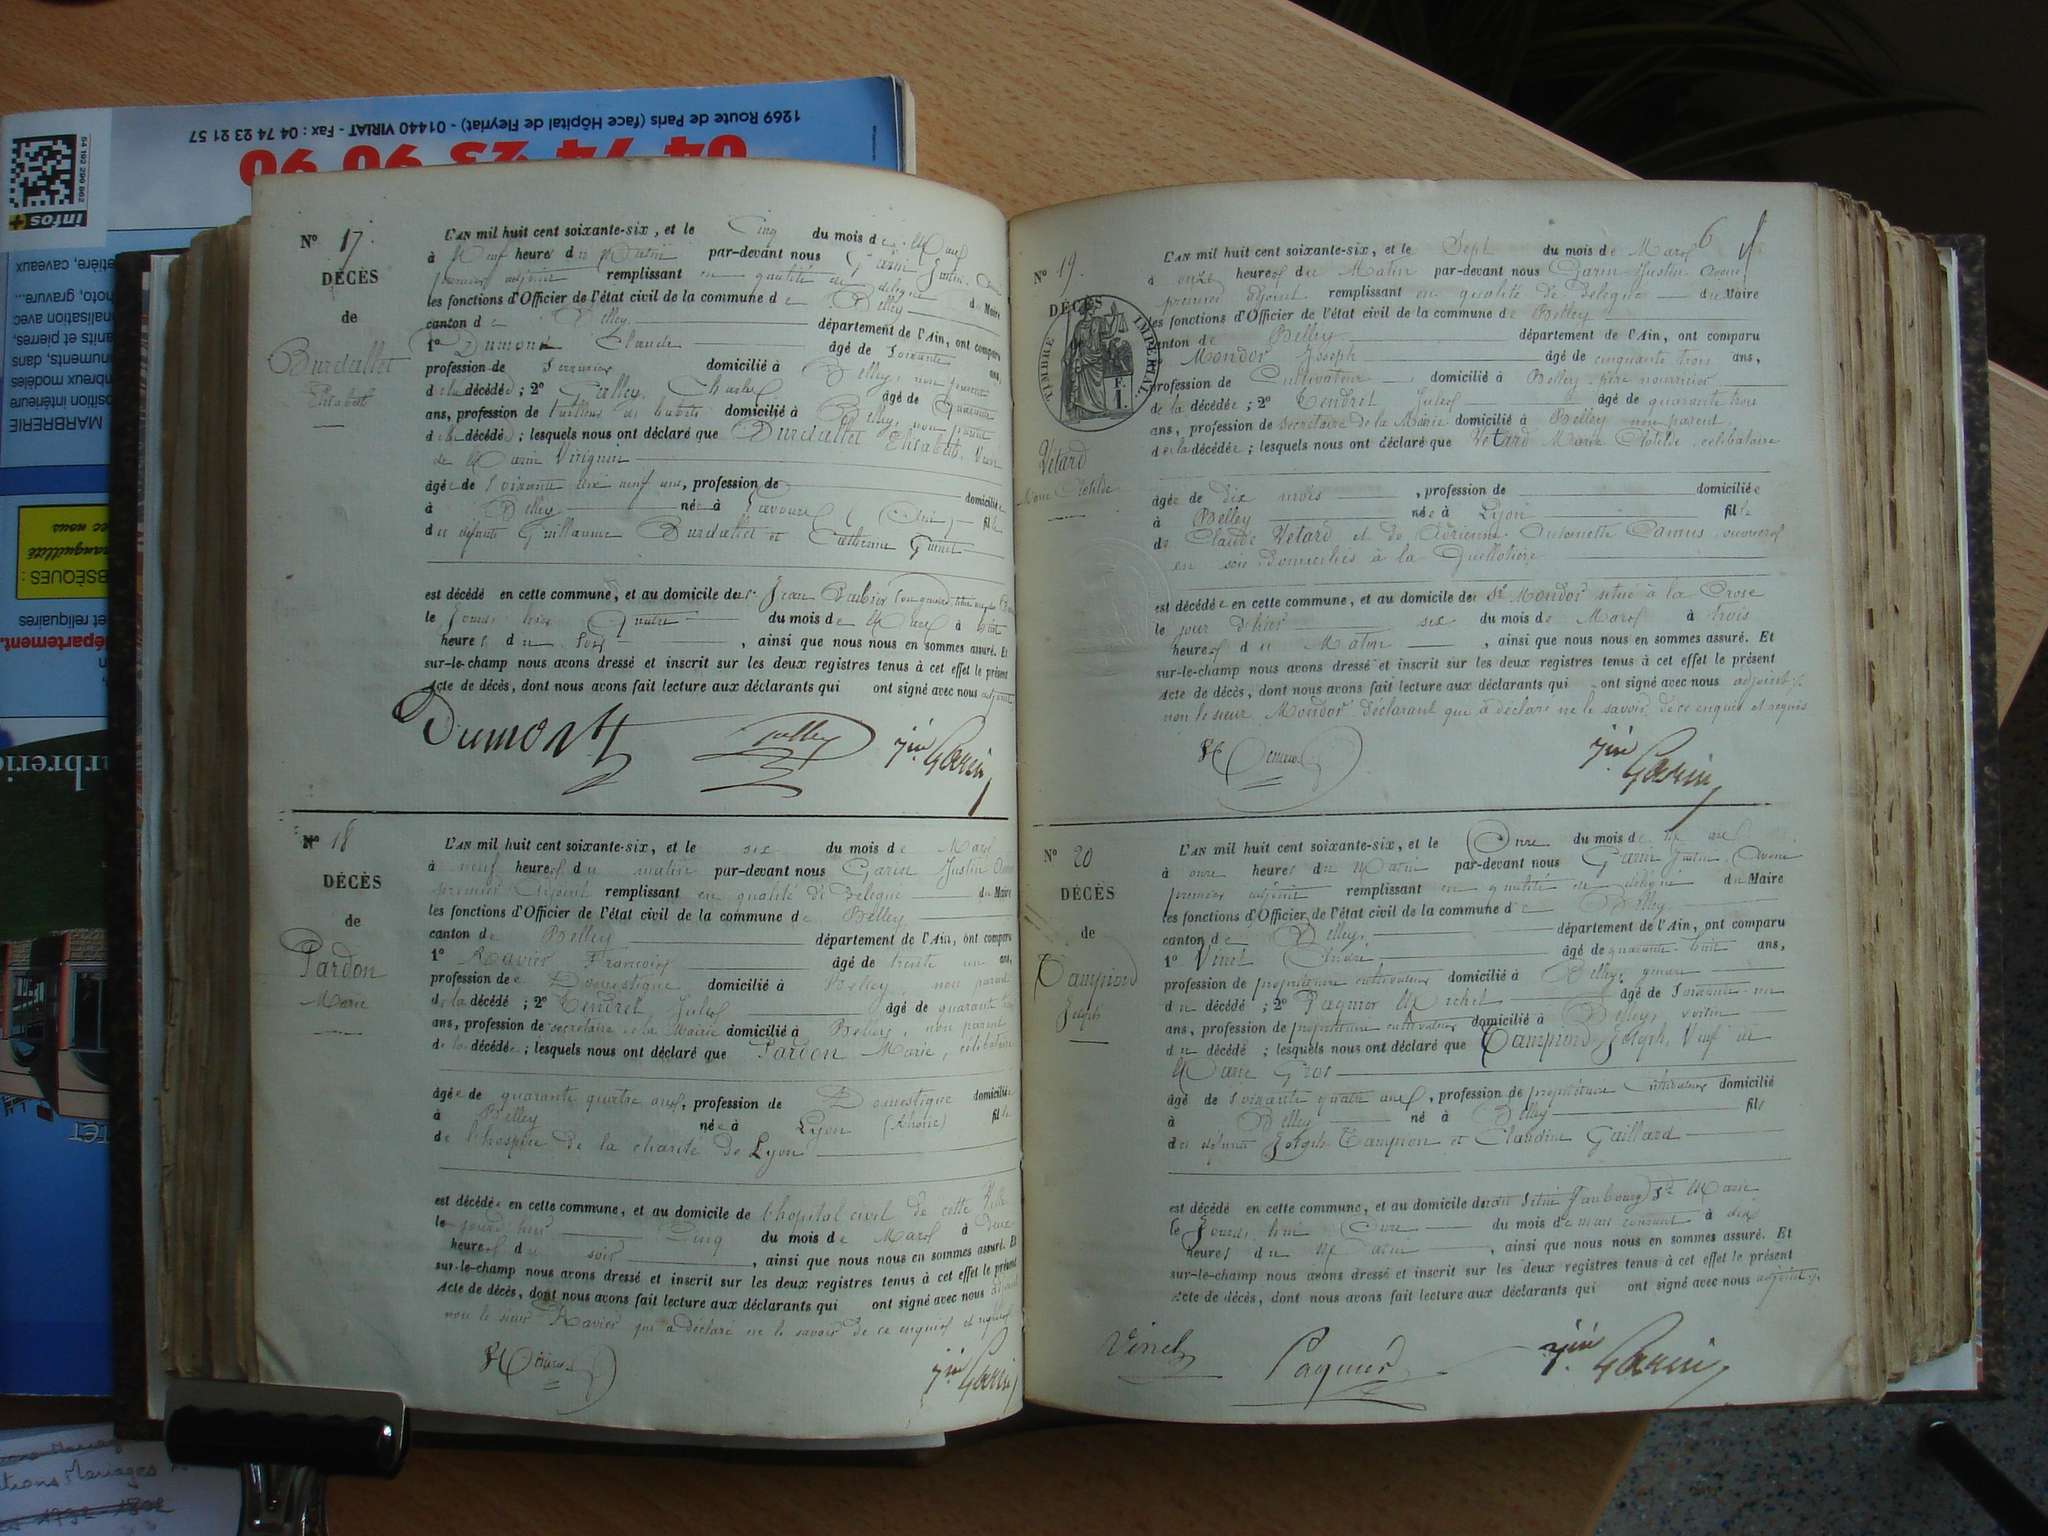 1269 Route de Paris (face Hôpital de Fleyriat) - 01440 VIRIAT - Fax : 04 74 23 21 57
04 74 23 90 90
infos+
N° 17.
DÉCÈS
de
Burdallet
Elisabeth
L'AN mil huit cent soixante-six, et le Cinq du mois de Mars
à Neuf heures du Matin par-devant nous Garin Justin
premier adjoint remplissant en qualité de délégué du Maire
les fonctions d'Officier de l'état civil de la commune de Belley
canton de Belley département de l'Ain, ont comparu
1° Dumont Claude âgé de Soixante ans,
profession de domicilié à Belley, non parent
de la décédée ; 2° Charles âgé de Quarante
ans, profession de tailleur d'habits domicilié à Belley, non parent
de la décédée ; lesquels nous ont déclaré que Burdallet Elisabeth, Veuve
de Virignin
âgée de Soixante dix neuf ans, profession de domiciliée
à Belley née à Lavours (Ain) fille
des défunts Guillaume Burdallet et Catherine Guinet
est décédée en cette commune, et au domicile de Jean Barbier
le jour d'hier Quatre du mois de Mars à huit
heures du soir, ainsi que nous nous en sommes assuré. Et
sur-le-champ nous avons dressé et inscrit sur les deux registres tenus à cet effet le présent
Acte de décès, dont nous avons fait lecture aux déclarants qui ont signé avec nous adjoint
Dumont jin Garin
N° 18
DÉCÈS
de
Pardon
Marie
L'AN mil huit cent soixante-six, et le six du mois de Mars
à neuf heures du matin par-devant nous Garin Justin
premier adjoint remplissant en qualité de Délégué du Maire
les fonctions d'Officier de l'état civil de la commune de Belley
canton de Belley département de l'Ain, ont comparu
1° Ravier François âgé de trente un ans,
profession de Domestique domicilié à Belley non parent
de la décédée ; 2° Tendret Jules âgé de quarante trois
ans, profession de secrétaire de la Mairie domicilié à Belley, non parent
de la décédée ; lesquels nous ont déclaré que Pardon Marie, célibataire
âgée de quarante quatre ans, profession de Domestique domiciliée
à Belley née à Lyon (Rhône) fille
de l'hospice de la charité de Lyon
est décédée en cette commune, et au domicile de l'hopital civil de cette Ville
le jour d'hier Cinq du mois de Mars à Deux
heures du soir, ainsi que nous nous en sommes assuré. Et
sur-le-champ nous avons dressé et inscrit sur les deux registres tenus à cet effet le présent
Acte de décès, dont nous avons fait lecture aux déclarants qui ont signé avec nous adjoint
non le sieur Ravier qui a déclaré ne le savoir de ce enquis et requis
jin Garin
6
N° 19.
DÉCÈS
TIMBRE IMPÉRIAL
F. 1.
Vetard
Marie Clotilde
L'AN mil huit cent soixante-six, et le Sept du mois de Mars
à onze heures du Matin par-devant nous Garin Justin
premier adjoint remplissant en qualité de Délégué du Maire
les fonctions d'Officier de l'état civil de la commune de Belley
canton de Belley département de l'Ain, ont comparu
Mondor Joseph âgé de cinquante trois ans,
profession de Cultivateur domicilié à Belley père nourricier
de la décédée ; 2° Tendret Jules âgé de quarante trois
ans, profession de secrétaire de la Mairie domicilié à Belley non parent
de la décédée ; lesquels nous ont déclaré que Vetard Marie Clotilde, célibataire
âgée de dix mois, profession de domiciliée
à Belley née à Lyon fille
de Claude Vetard et de Adrienne Antoinette Camus, ouvriers
en soie Domiciliés à la Guillotière
est décédée en cette commune, et au domicile de Sr Mondor situé à la Crose
le jour d'hier six du mois de Mars à trois
heures du Matin, ainsi que nous nous en sommes assuré. Et
sur-le-champ nous avons dressé et inscrit sur les deux registres tenus à cet effet le présent
Acte de décès, dont nous avons fait lecture aux déclarants qui ont signé avec nous adjoint
non le sieur Mondor déclarant que a déclaré ne le savoir de ce enquis et requis
jin Garin
N° 20
DÉCÈS
de
Tampiond
Joseph
L'AN mil huit cent soixante-six, et le Onze du mois de Mars
à onze heures du Matin par-devant nous Garin Justin
premier adjoint remplissant en qualité de délégué du Maire
les fonctions d'Officier de l'état civil de la commune de Belley
canton de Belley département de l'Ain, ont comparu
1° Vinel André âgé de quarante huit ans,
profession de propriétaire cultivateur domicilié à Belley, gendre
du décédé ; 2° Paquier Michel âgé de Soixante un
ans, profession de propriétaire cultivateur domicilié à Belley voisin
du décédé ; lesquels nous ont déclaré que Tampiond Joseph, Veuf de
Marie Gros
âgé de soixante quatre ans, profession de propriétaire cultivateur domicilié
à Belley né à Belley fils
des défunts Joseph Tampion et Claudine Gaillard
est décédé en cette commune, et au domicile Situé Faubourg St Marie
le Jourd'hui Onze du mois de mars courant à dix
heures du Matin, ainsi que nous nous en sommes assuré. Et
sur-le-champ nous avons dressé et inscrit sur les deux registres tenus à cet effet le présent
Acte de décès, dont nous avons fait lecture aux déclarants qui ont signé avec nous adjoint
Vinel Paquier jin Garin